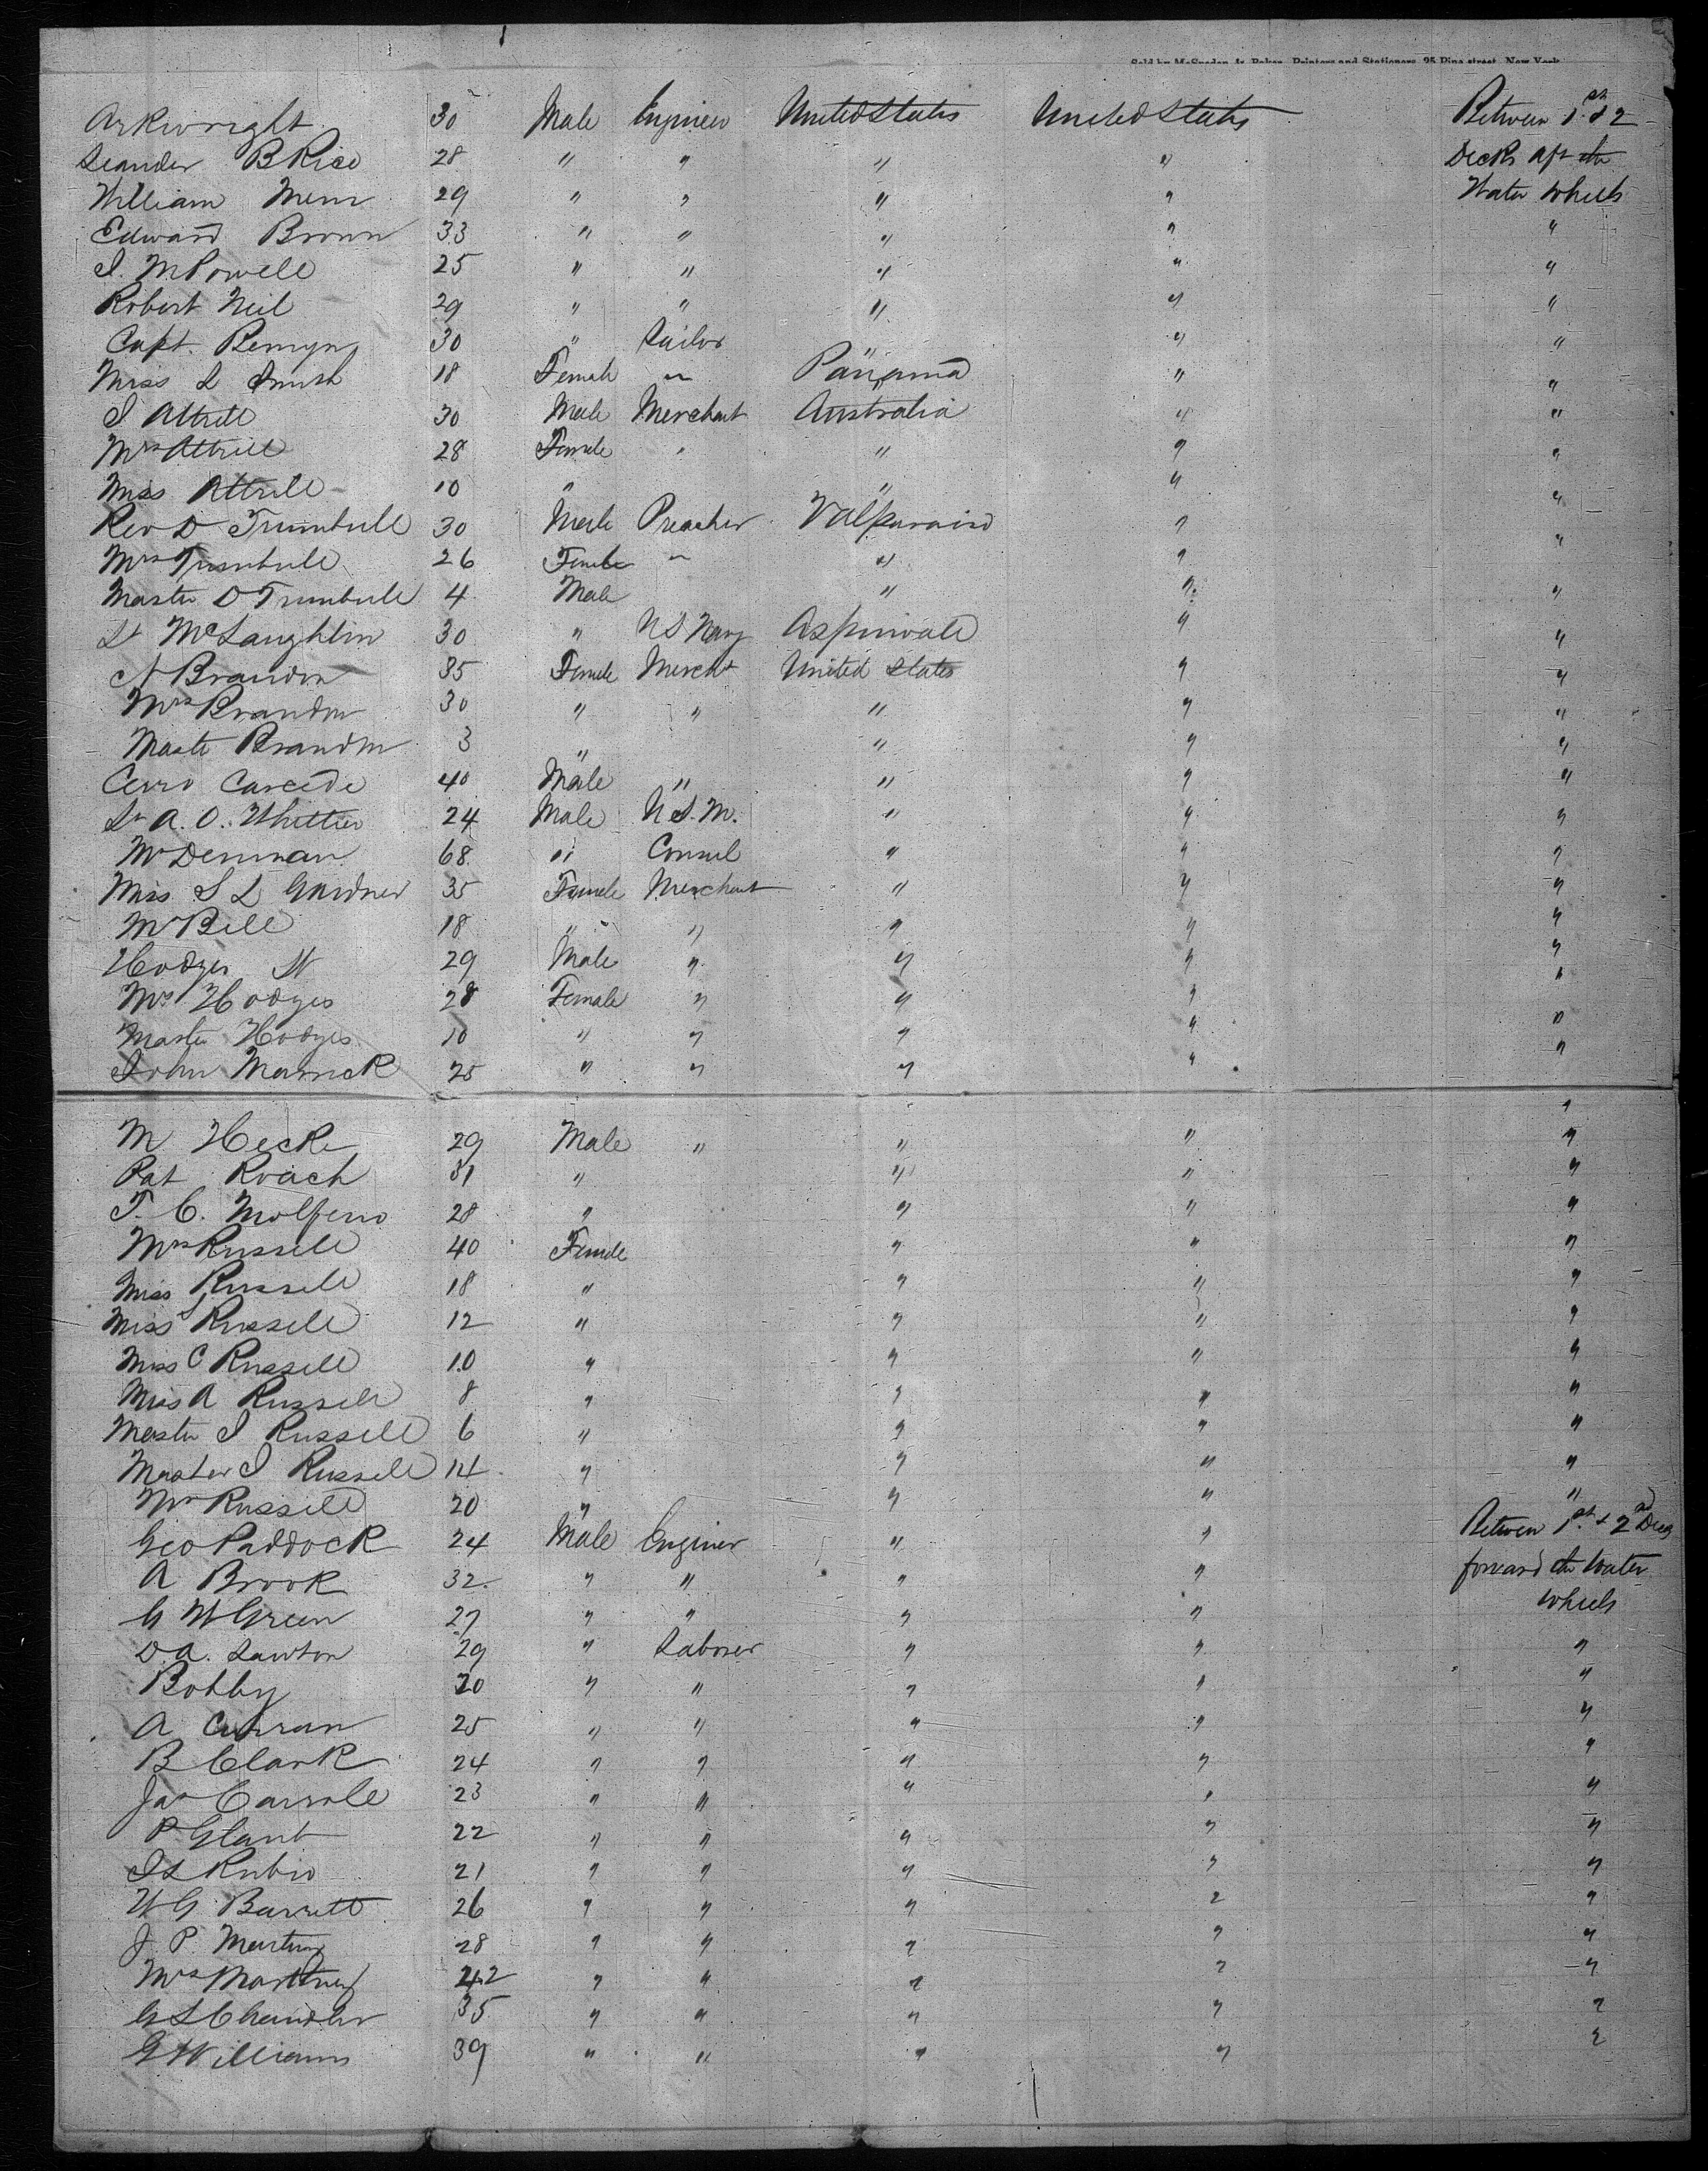 Sold by McSpedon & Baker, Printers and Stationers, 25 Pine street, New York
Arkwright 30 Male Engineer United States United States Between 1st & 2
Leander B Rice 28 " " " " Decks aft the
William Mem 29 " " " " Water Wheels
Edward Brown 33 " " " " "
I. M Powell 25 " " " " "
Robert Neil 29 " " " " "
Capt. 30 " Sailor " " "
Miss L Smith 18 Female " Panama " "
S Attrill 30 Male Merchant Australia " "
Mrs Attrill 28 Female " " " "
Miss Attrill 10 " " " "
Rev D Trumbull 30 Male Preacher Valparaiso " "
Mrs Trumbull 26 Female " " "
Master D Trumbull 4 Male " " "
Lt McLaughlin 30 " U S Navy Aspinwall " "
N Brandon 35 Female Mercht United States " "
Mrs Brandon 30 " " " " "
Maste Brandon 3 " " " "
Cerro Carcede 40 Male " " " "
Lt A. O. Whittier 24 Male U.S.M. " " "
Mr Denman 68 " Consul " " "
Miss S L Gardner 35 Female Merchant " " "
Mr Bell 18 " " " " "
Hodges W 29 Male " " " "
Mrs Hodges 28 Female " " " "
Master Hodges 10 " " " " "
John Marrick 25 " " " " "
M Hecke 29 Male " " " "
Pat Roach 31 " " " "
T. C. Molfeno 28 " " " "
Mrs Russell 40 Female " " "
Miss Russell 18 " " " "
Miss S Russell 12 " " " "
Miss C Russell 10 " " " "
Miss A Russell 8 " " " "
Master I Russell 6 " " " "
Master I Russell 14 " " " "
Mr Russell 20 " " " "
Geo Paddock 24 Male Enginer " " Between 1st & 2nd Decks
A Brook 32 " " " " forward the Water
G W Green 27 " " " " Wheels
D. A. Lawton 29 " Laborer " " "
Bobby 20 " " " " "
A Curran 25 " " " " "
B Clark 24 " " " " "
Jas Carrole 23 " " " " "
P Glant 22 " " " " "
I L Rubio 21 " " " " "
W G Barrett 26 " " " " "
J P Marting 28 " " " " "
Mrs 42 " " " " "
G L Chandler 35 " " " " "
G Williams 39 " " " " "